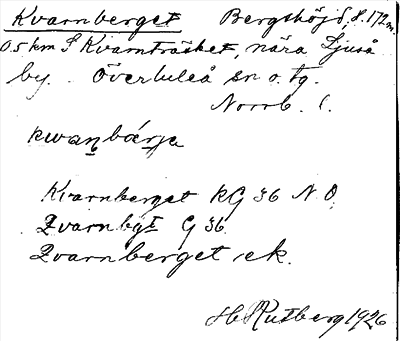 Kvarnberget Bergshöjd, h. 172 m.
0.5 km S Kvarnträsket, nära Ljuså
by. Överluleå sn o. tg.
Norrb. l.
kwaṉbárja
Kvarnberget KG 36 N.O.
Qvarnbgt G 36.
Qvarnberget ek.
H. Rutberg 1926